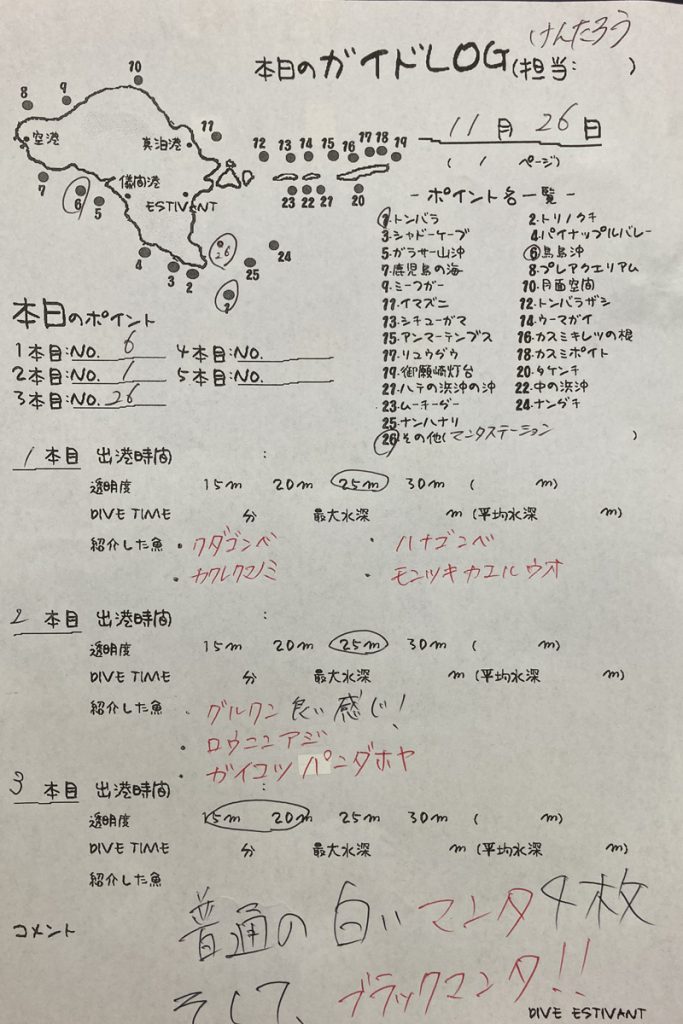 けんたろう
本日のガイドLOG(担当: )
11月 26日
( 1 ページ)
10
9
8
空港
真泊港
11
12 13 14 15 16 17 18 19
7
6
5
儀間港
ESTIVANT
23 22 21 20
26
24
25
4
3
2
1
-ポイント名一覧-
1トンバラ 2トリノクチ
3シャドーケーブ 4パイナップルバレー
5ガラサー山沖 6鳥島沖
7鹿児島の海 8プレアクエリアム
9ミーフガー 10月面空間
11イマズニ 12トンバラザシ
13シチューガマ 14ウーマガイ
15アンマーテンプス 16カスミキレツの根
17リュウグウ 18カスミポイト
19御願崎灯台 20タケンチ
21ハテの浜沖の沖 22中の浜沖
23ムーチーグー 24ナンダチ
25ナンハナリ
26その他(マンタステーション )
本日のポイント
1本目:NO. 6 4本目:NO.
2本目:NO. 1 5本目:NO.
3本目:NO. 26
1 本目 出港時間 :
透明度 15m 20m 25m 30m ( m)
DIVE TIME 分 最大水深 m (平均水深 m)
紹介した魚 ・クダゴンベ ・ハナゴンベ
・カクレクマノミ ・モンツキカエルウオ
2 本目 出港時間 :
透明度 15m 20m 25m 30m ( m)
DIVE TIME 分 最大水深 m (平均水深 m)
紹介した魚 ・グルクン 良い感じ!
・ロウニンアジ
・ガイコツパンダホヤ
3 本目 出港時間 :
透明度 15m 20m 25m 30m ( m)
DIVE TIME 分 最大水深 m (平均水深 m)
紹介した魚
コメント 普通の白いマンタ4枚
そして、ブラックマンタ!!
DIVE ESTIVANT